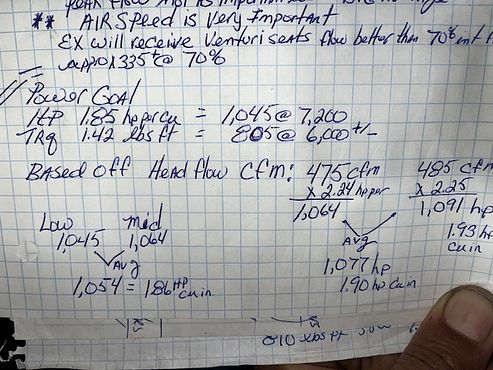 ** AIRSpeed is Very Important
EX will receive Venturi seats flow better than 70% int
approx 335+ @ 70%
Power Goal
HP 1.85 hp per cu = 1,045 @ 7,200
TRQ 1.42 lbs ft = 805 @ 6,000 +/-
BASed off Head flow Cfm: 475 cfm 485 cfm
x 2.24 hp per x 2.25
1,064 1,091 hp
Low mid 1.93 hp
1,045 1,064 Avg cu in
Avg 1,077 hp
1,054 = 1.86 HP cu in 1.90 hp cu in